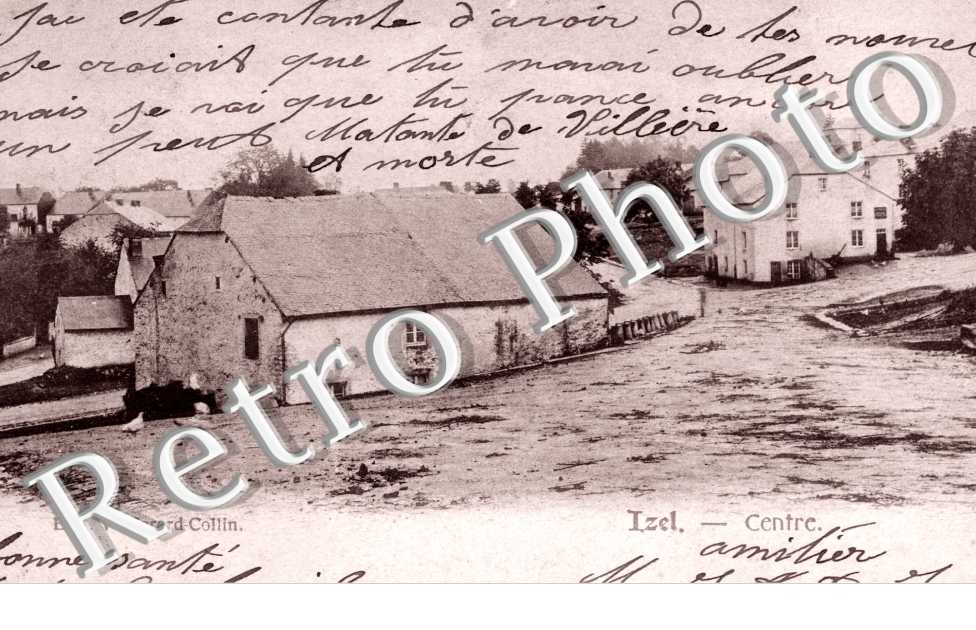 j'ai ete contante d'avoir de tes nouvel
je croiait que tu mavai oublier
mais je voi que tu pance ancor
un peut Matante de Villiere
et morte
Retro Photo
Collin.
Izel. — Centre.
bonne santé
amitier